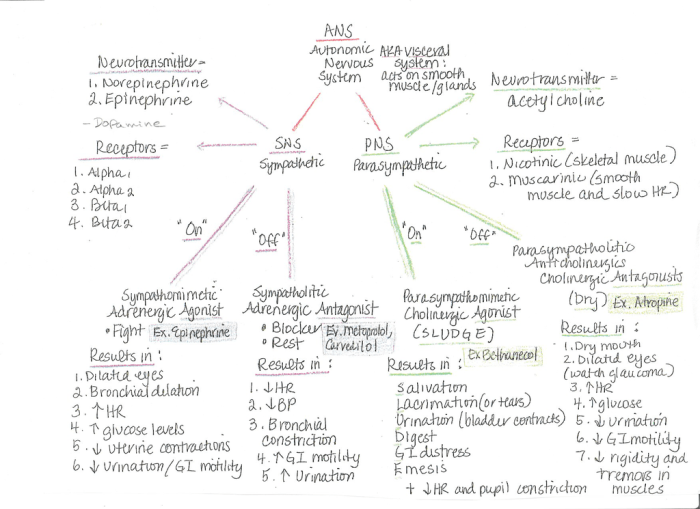 ANS
Autonomic
Nervous
System
AKA visceral
system:
acts on smooth
muscle/glands
Neurotransmitter=
1. Norepinephrine
2. Epinephrine
- Dopamine
Receptors =
1. Alpha1
2. Alpha2
3. Beta1
4. Beta2
SNS
Sympathetic
PNS
Parasympathetic
Neurotransmitter =
acetylcholine
Receptors =
1. Nicotinic (skeletal muscle)
2. Muscarinic (smooth
muscle and slow HR)
"On"
"Off"
"On"
"Off"
Sympathomimetic
Adrenergic Agonist
• Fight Ex. Epinephrine
Results in:
1. Dilated eyes
2. Bronchial dilation
3. ↑HR
4. ↑ glucose levels
5. ↓ uterine contractions
6. ↓ Urination/GI motility
Sympatholitic
Adrenergic Antagonist
• Blocker
• Rest
Ex. metoprolol,
Carvedilol
Results in:
1. ↓HR
2. ↓BP
3. Bronchial
constriction
4. ↑GI motility
5. ↑ Urination
Parasympathomimetic
Cholinergic Agonist
(SLUDGE)
Results in:
Ex Bethanecol
Salivation
Lacrimation (or tears)
Urination (bladder contracts)
Digest
GI distress
Emesis
+ ↓HR and pupil constriction
Parasympatholitic
Anticholinergics
Cholinergic Antagonists
(Dry) Ex. Atropine
Results in:
1. Dry mouth
2. Dilated eyes
(watch glaucoma)
3. ↑HR
4. ↑glucose
5. ↓urination
6. ↓GI motility
7. ↓ rigidity and
tremors in
muscles